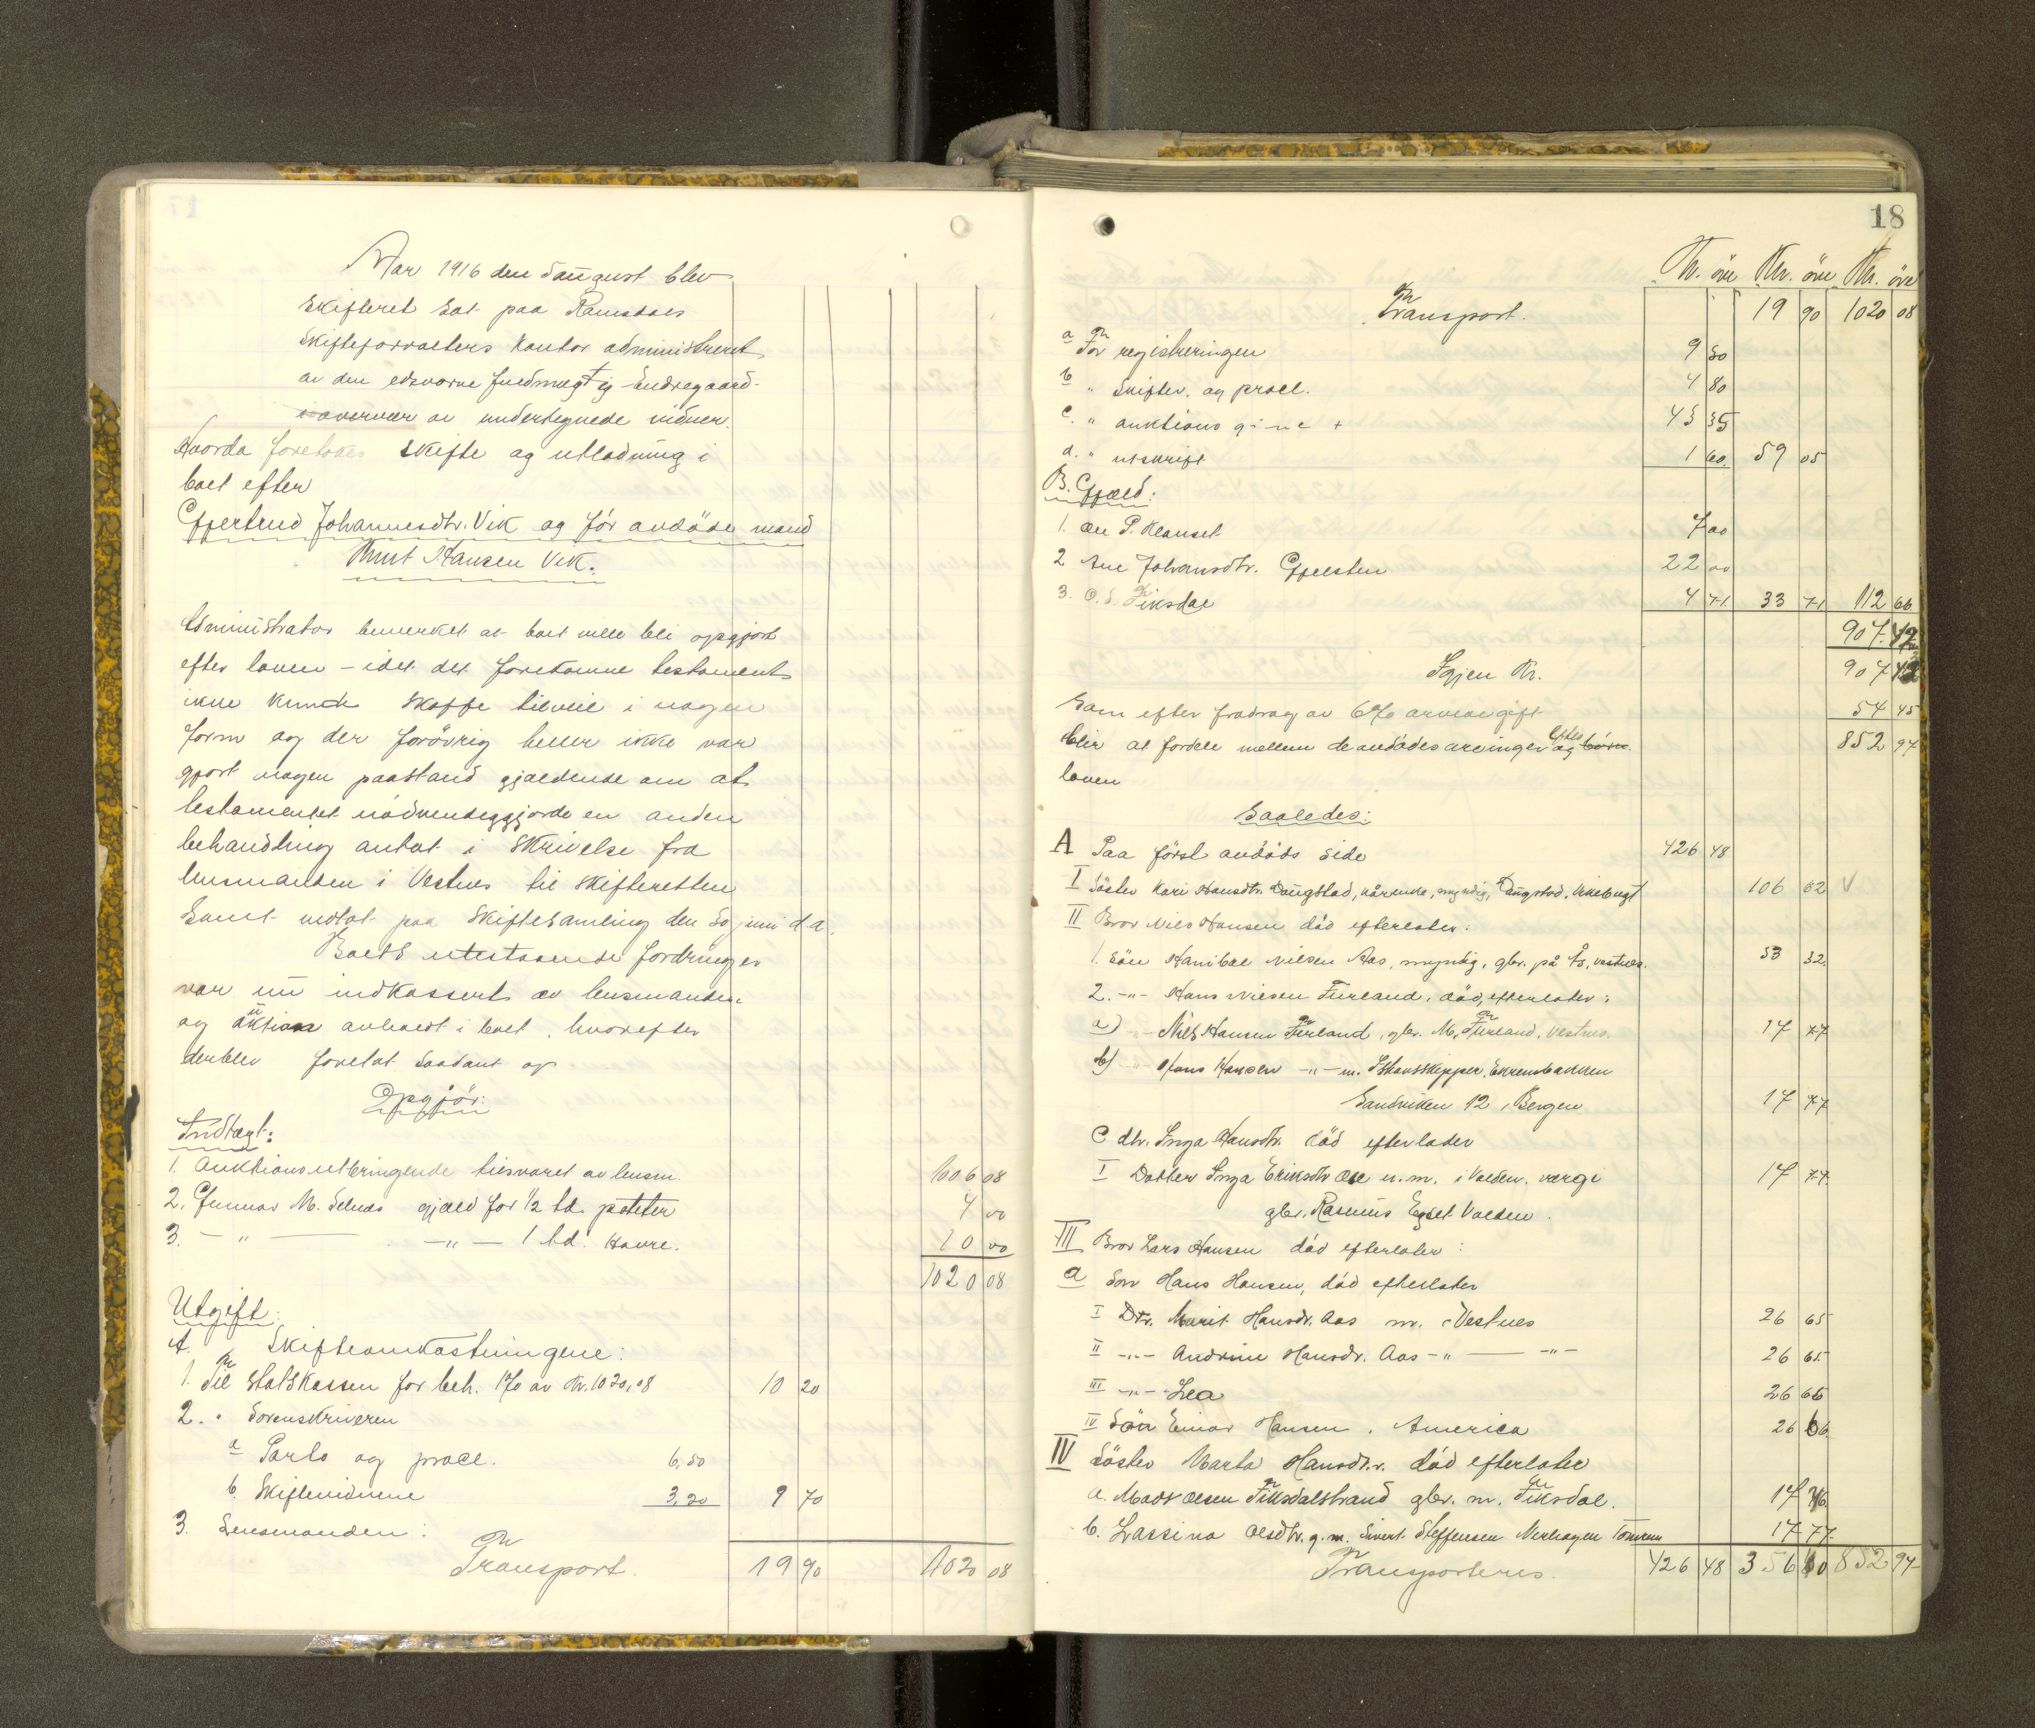 Aar 1916 den 5 august blev
Skifteret sat paa Ramsdals
Skifteforvalters Kontor administreret
av den edsvorne fuldmægtig Endregaard
i overvær av undertegnede vidner.
Hvorda foretokes skifte og utlodning i
boet efter
Gjertrud Johannesdtr. Vik og før avdøde mand
Knut Hansen Vik.
Administrator bemerket at boet ville bli opgjort
efter loven – idet det forekomne testament
ikke kunde skaffe tilveie i nogen
form og der forøvrig heller ikke var
gjort nogen paastand gjældende om at
testamentet nødvendiggjorde en anden
behandling antat i skrivelse fra
lensmanden i Vestnes til skifteretten
samt vedtat paa Skiftesamling den 30 juni d.a.
Boets utestaaende fordringer
var nu indkassert av lensmanden
og auktion avholdt i boet, hvorefter
der blev foretat saadant op
Opgjør:
Indtægt:
1. Auktionsutbringende tilsvaret av lensm. 1006 08
2. Gunnar M. Selnes gjæld for 1/2 td. poteter 4 00
3. — " — — " — 1 td. Havre. 10 00
1020 08
Utgift:
A. Skifteomkostningene:
1. Til Statskassen for beh. 1% av Kr. 1020,08 10 20
2. " Sorenskriveren
a Porto og procl. 6,50
b. Skiftevidnene 3,20 9 70
3. Lensmanden:
Transport. 19 90 1020 08
18
Kr. øre Kr. øre Kr. øre
Transport. 19 90 1020 08
a For registreringen 9 50
b " Skiftev. og procl. 4 80
c. " auktions 43 35
d. " utskrift 1 60 59 05
B. Gjæld:
1. Ole P. Klauset 7 00
2 Ane Johansdtr. Gjelsten 22 00
3. O. S. Fiksdal 4 71 33 71 112 66
907 42
Igjen Kr. 907 42
Som efter fradrag av 6% arveavgift 54 45
blir at fordele mellem de avdødes arvinger efter
loven 852 97
Saaledes:
A Paa først avdøds side 426 48
I Søster Kari Hansdtr. Daugstad, kårenke, myndig, Daugstad, Vikebugt 106 62 V
II Bror Nils Hansen død efterlater:
1. Søn Hanibal Nilsen Aas, myndig, gbr. på Ås, Vestnes. 53 32
2. -"- Hans Nilsen Furland, død, efterlater:
a) " Nils Hansen Furland, gbr. M, Furland, Vestnes. 17 77
b) " Hans Hansen -"- m. Iskaasskipper, Ekrembakken
Sandviken 12, Bergen 17 77
c dtr. Inga Hansdtr. død efterlater
I Datter Inga Eriksdtr u.m. i Valden, værge 17 77
gbr. Rasmus Egset Valden.
III Bror Lars Hansen død efterlater:
a Søn Hans Hansen, død efterlater
I Dtr. Marit Hansdr. Aas m. Vestnes 26 65
II -"- Andrine Hansdr. Aas -"- -"- 26 65
III -"- Lea 26 66
IV Søn Einar Hansen, America 26 66
IV Søster Marta Hansdtr. død efterlater
a. Mads Olsen Fiksdalstrand gbr. m. Fiksdal. 17 76
b. Lassina Olsdtr. g.m. Sivert Steffensen Nerhagen Tomrem 17 77
Transporteres. 426 48 356 40 852 97